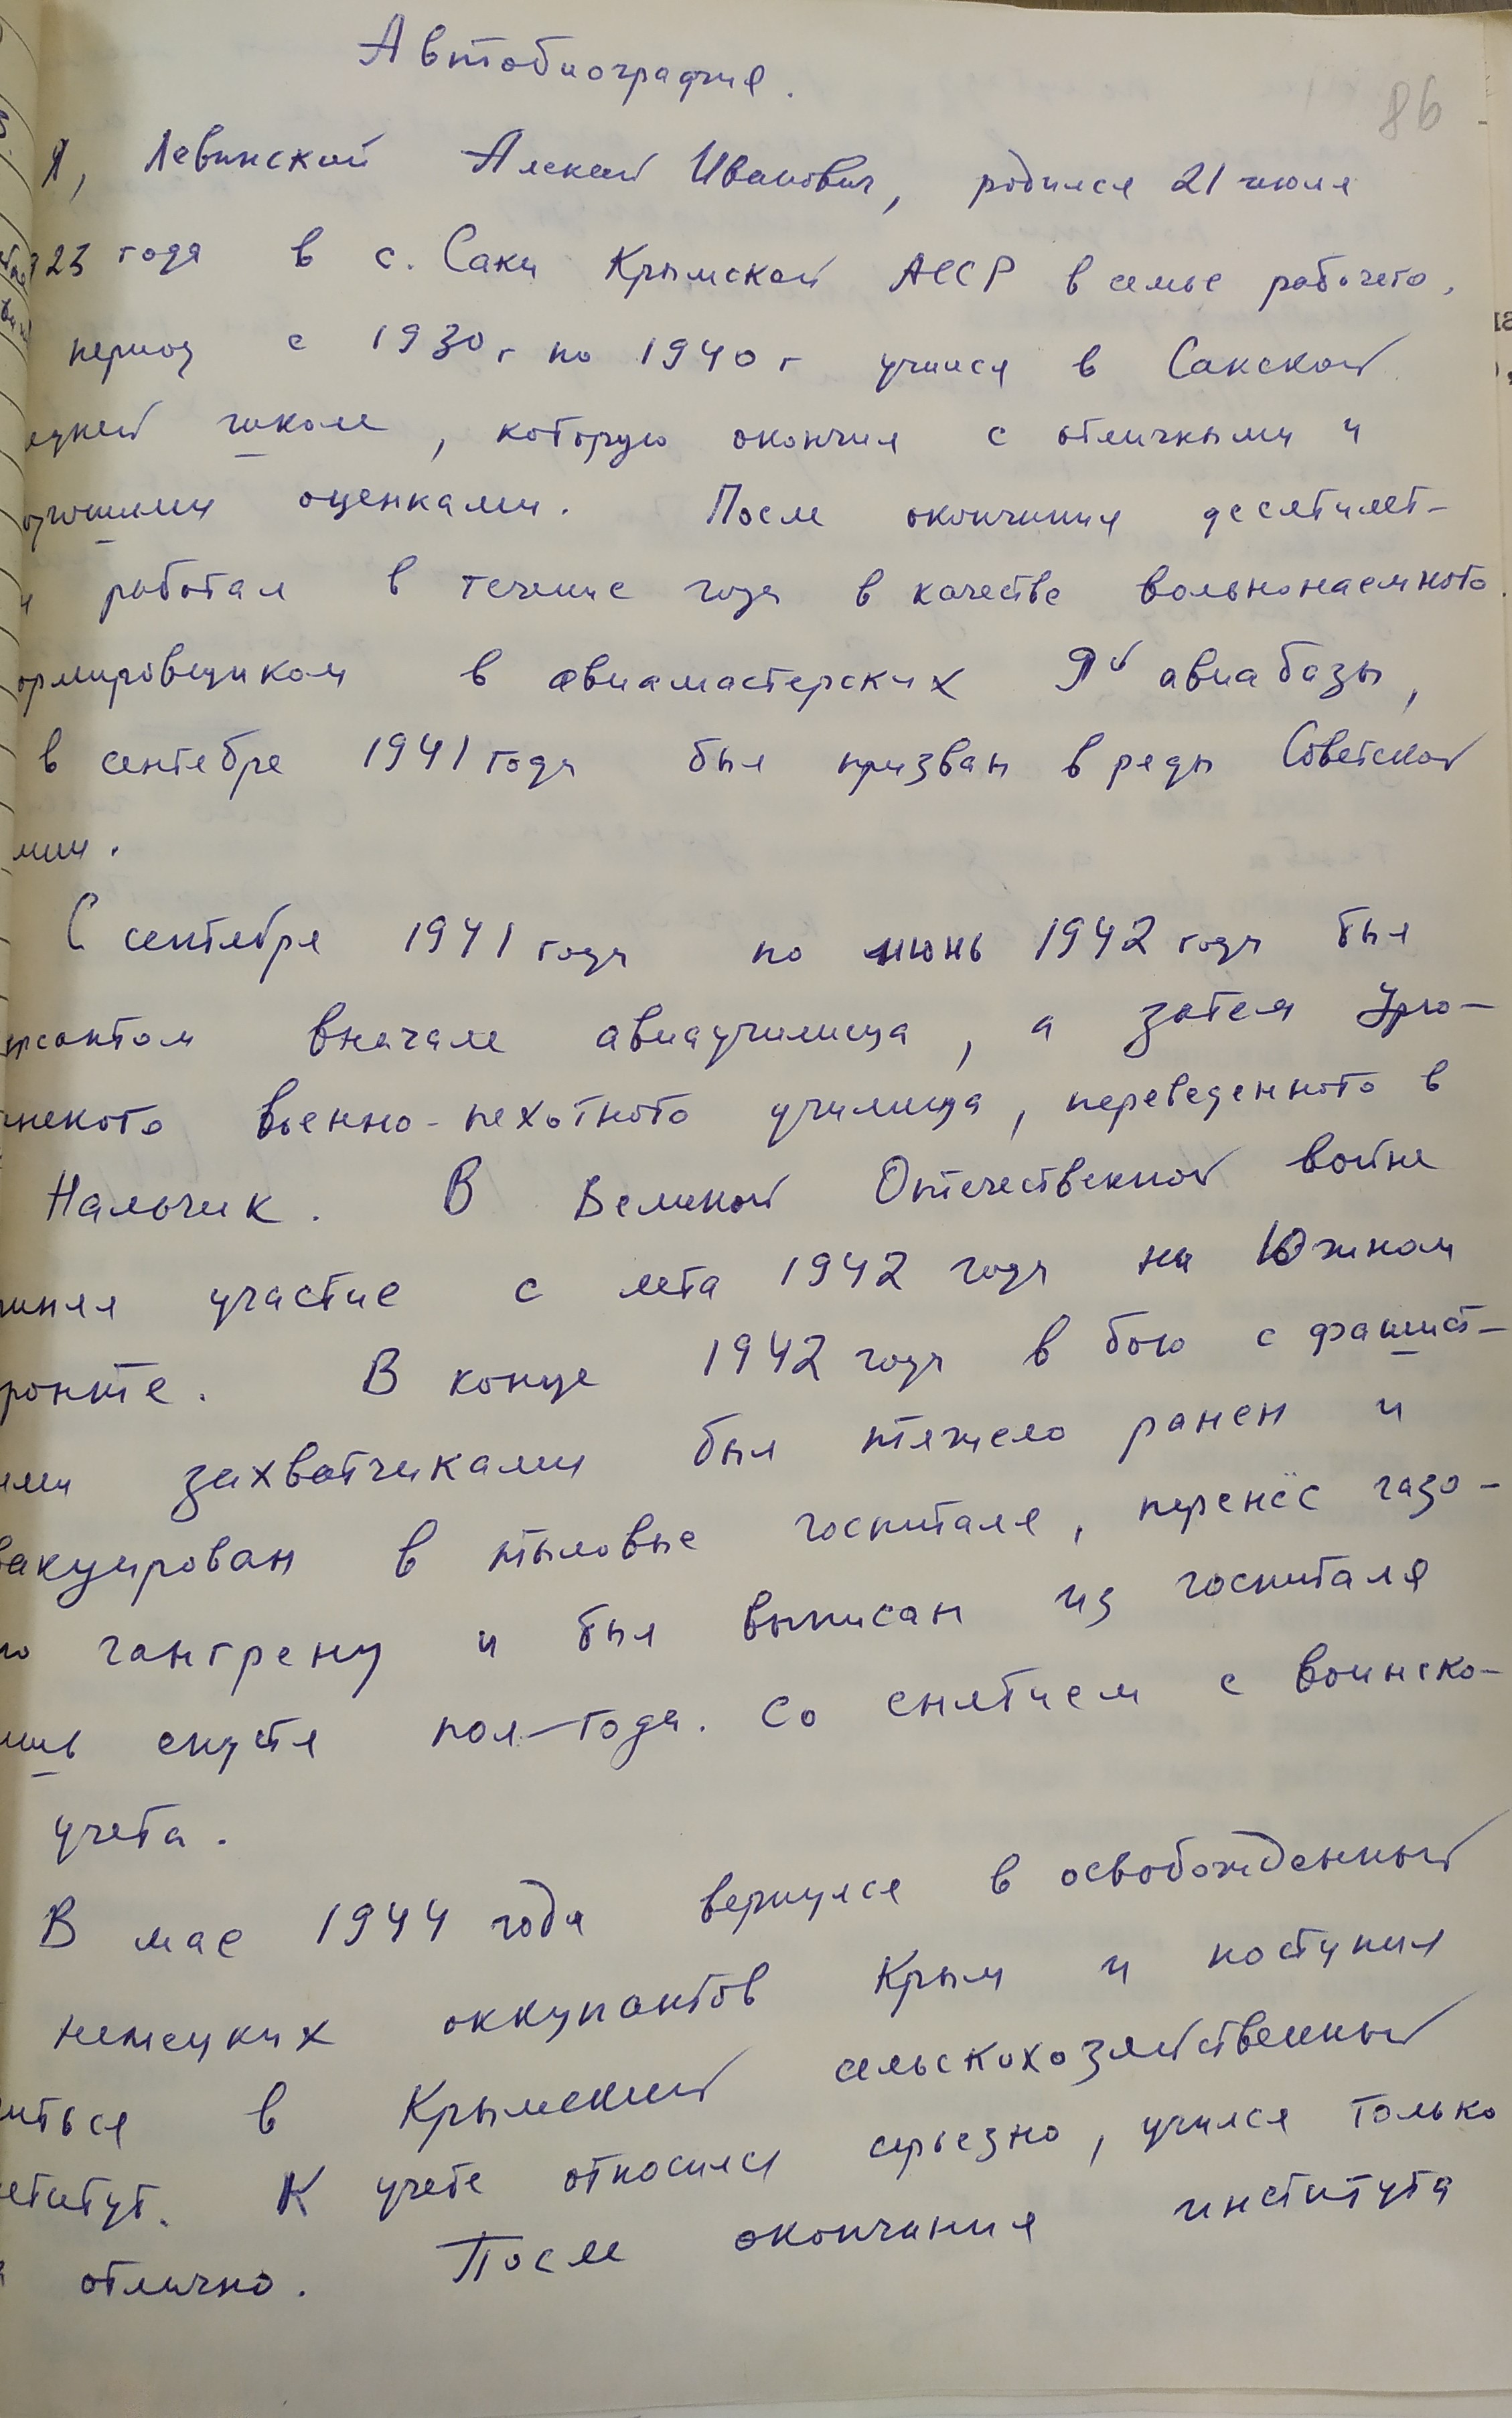 Автобиография.
86
Я, Левинский Алексей Иванович, родился 21 июля
923 года в с. Саки Крымской АССР в семье рабочего.
период с 1930 г по 1940 г учился в Сакской
едней школе, которую окончил с отличными и
хорошими оценками. После окончания десятилет-
и работал в течение года в качестве вольнонаемного
ормировщиком в авиамастерских 9й авиабазы,
в сентябре 1941 года был призван в ряды Советской
мии.
С сентября 1941 года по июнь 1942 года был
курсантом вначале авиаучилища, а затем Урю-
инского военно-пехотного училища, переведенного в
Нальчик. В Великой Отечественной войне
инял участие с лета 1942 года на Южном
ронте. В конце 1942 года в бою с фашист-
ими захватчиками был тяжело ранен и
вакуирован в тыловые госпиталя, перенёс газо-
ю гангрену и был выписан из госпиталя
ишь спустя пол-года. Со снятием с воинско-
учета.
В мае 1944 года вернулся в освобожденный
немецких оккупантов Крым и поступил
иться в Крымский сельскохозяйственный
ститут. К учебе относился серьезно, учился только
отлично. После окончания института